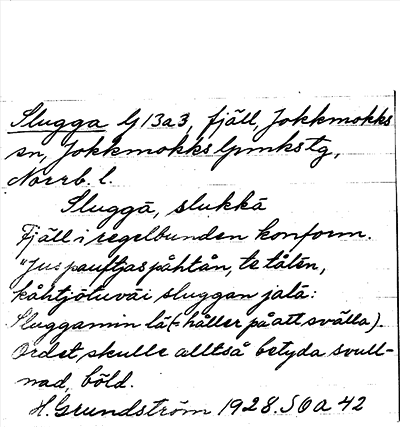 Slugga G 13a3, fjäll, Jokkmokks
sn, Jokkmokks lpmkstg,
Norrb. l.
Sluggā, slukkā
Fjäll i regelbunden konform.
"Jus pauftjas påhtån, te tåten,
kåhtjötuvāi sluggan jatā:
Sluggamin lā (= håller på att svälla).
Ordet skulle alltså betyda svull-
nad, böld.
H. Grundström 1928. SOA 42